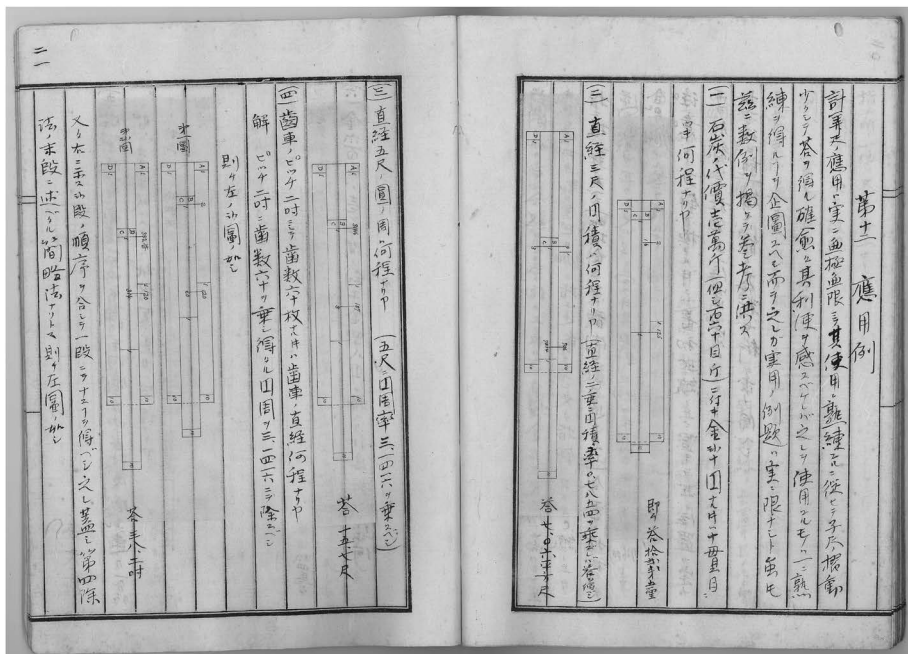 第十二 應用例
計算尺應用ハ実ニ無極無限ニシテ其使用ニ熟練スルニ從ヒテ子尺摺動
少クシテ答ヲ得ル確愈々其利便ヲ感スベケレバ之レヲ使用スルモノハ一ニ熟
練ヲ得ルコトヲ企圖スベシ而テ之レカ実用ノ例題ハ実ニ限ナシト虽モ
茲ニ数例ヲ掲ケテ參考ニ供ス
(一) 石炭ノ代價壱萬斤
ニ付キ金四十円ナルトキハ
何程ナリヤ
即チ答
(二) 直経三尺ノ円積ハ何程ナリヤ (直経ノ二乗ニ円積率〇.七八五四ヲ乗ズレバ
答 七.〇六平方尺
二一
(三) 直経五尺ノ圓ノ周何程ナリヤ (五尺ニ円周率三.一四一六ヲ乗スベシ)
答 十五.七尺
(四) 歯車ノピッチ二吋ニシテ歯数六十枚ナルトキハ歯車ノ直経何程ナリヤ
解 ピッチ二吋ニ歯数六十ヲ乗シ得タル円周ヲ三.一四一六ニテ除スベシ
則チ左ノ圖ノ如シ
第一圖
第二圖
答 三八.二吋
又タ右ニ示ス段ノ順序ヲ合シテ一段ニテナスコトヲ得ベシ之レ蓋シ第四除
法ノ末段ニ述ベタル簡略法ナリトス則チ左圖ノ如シ